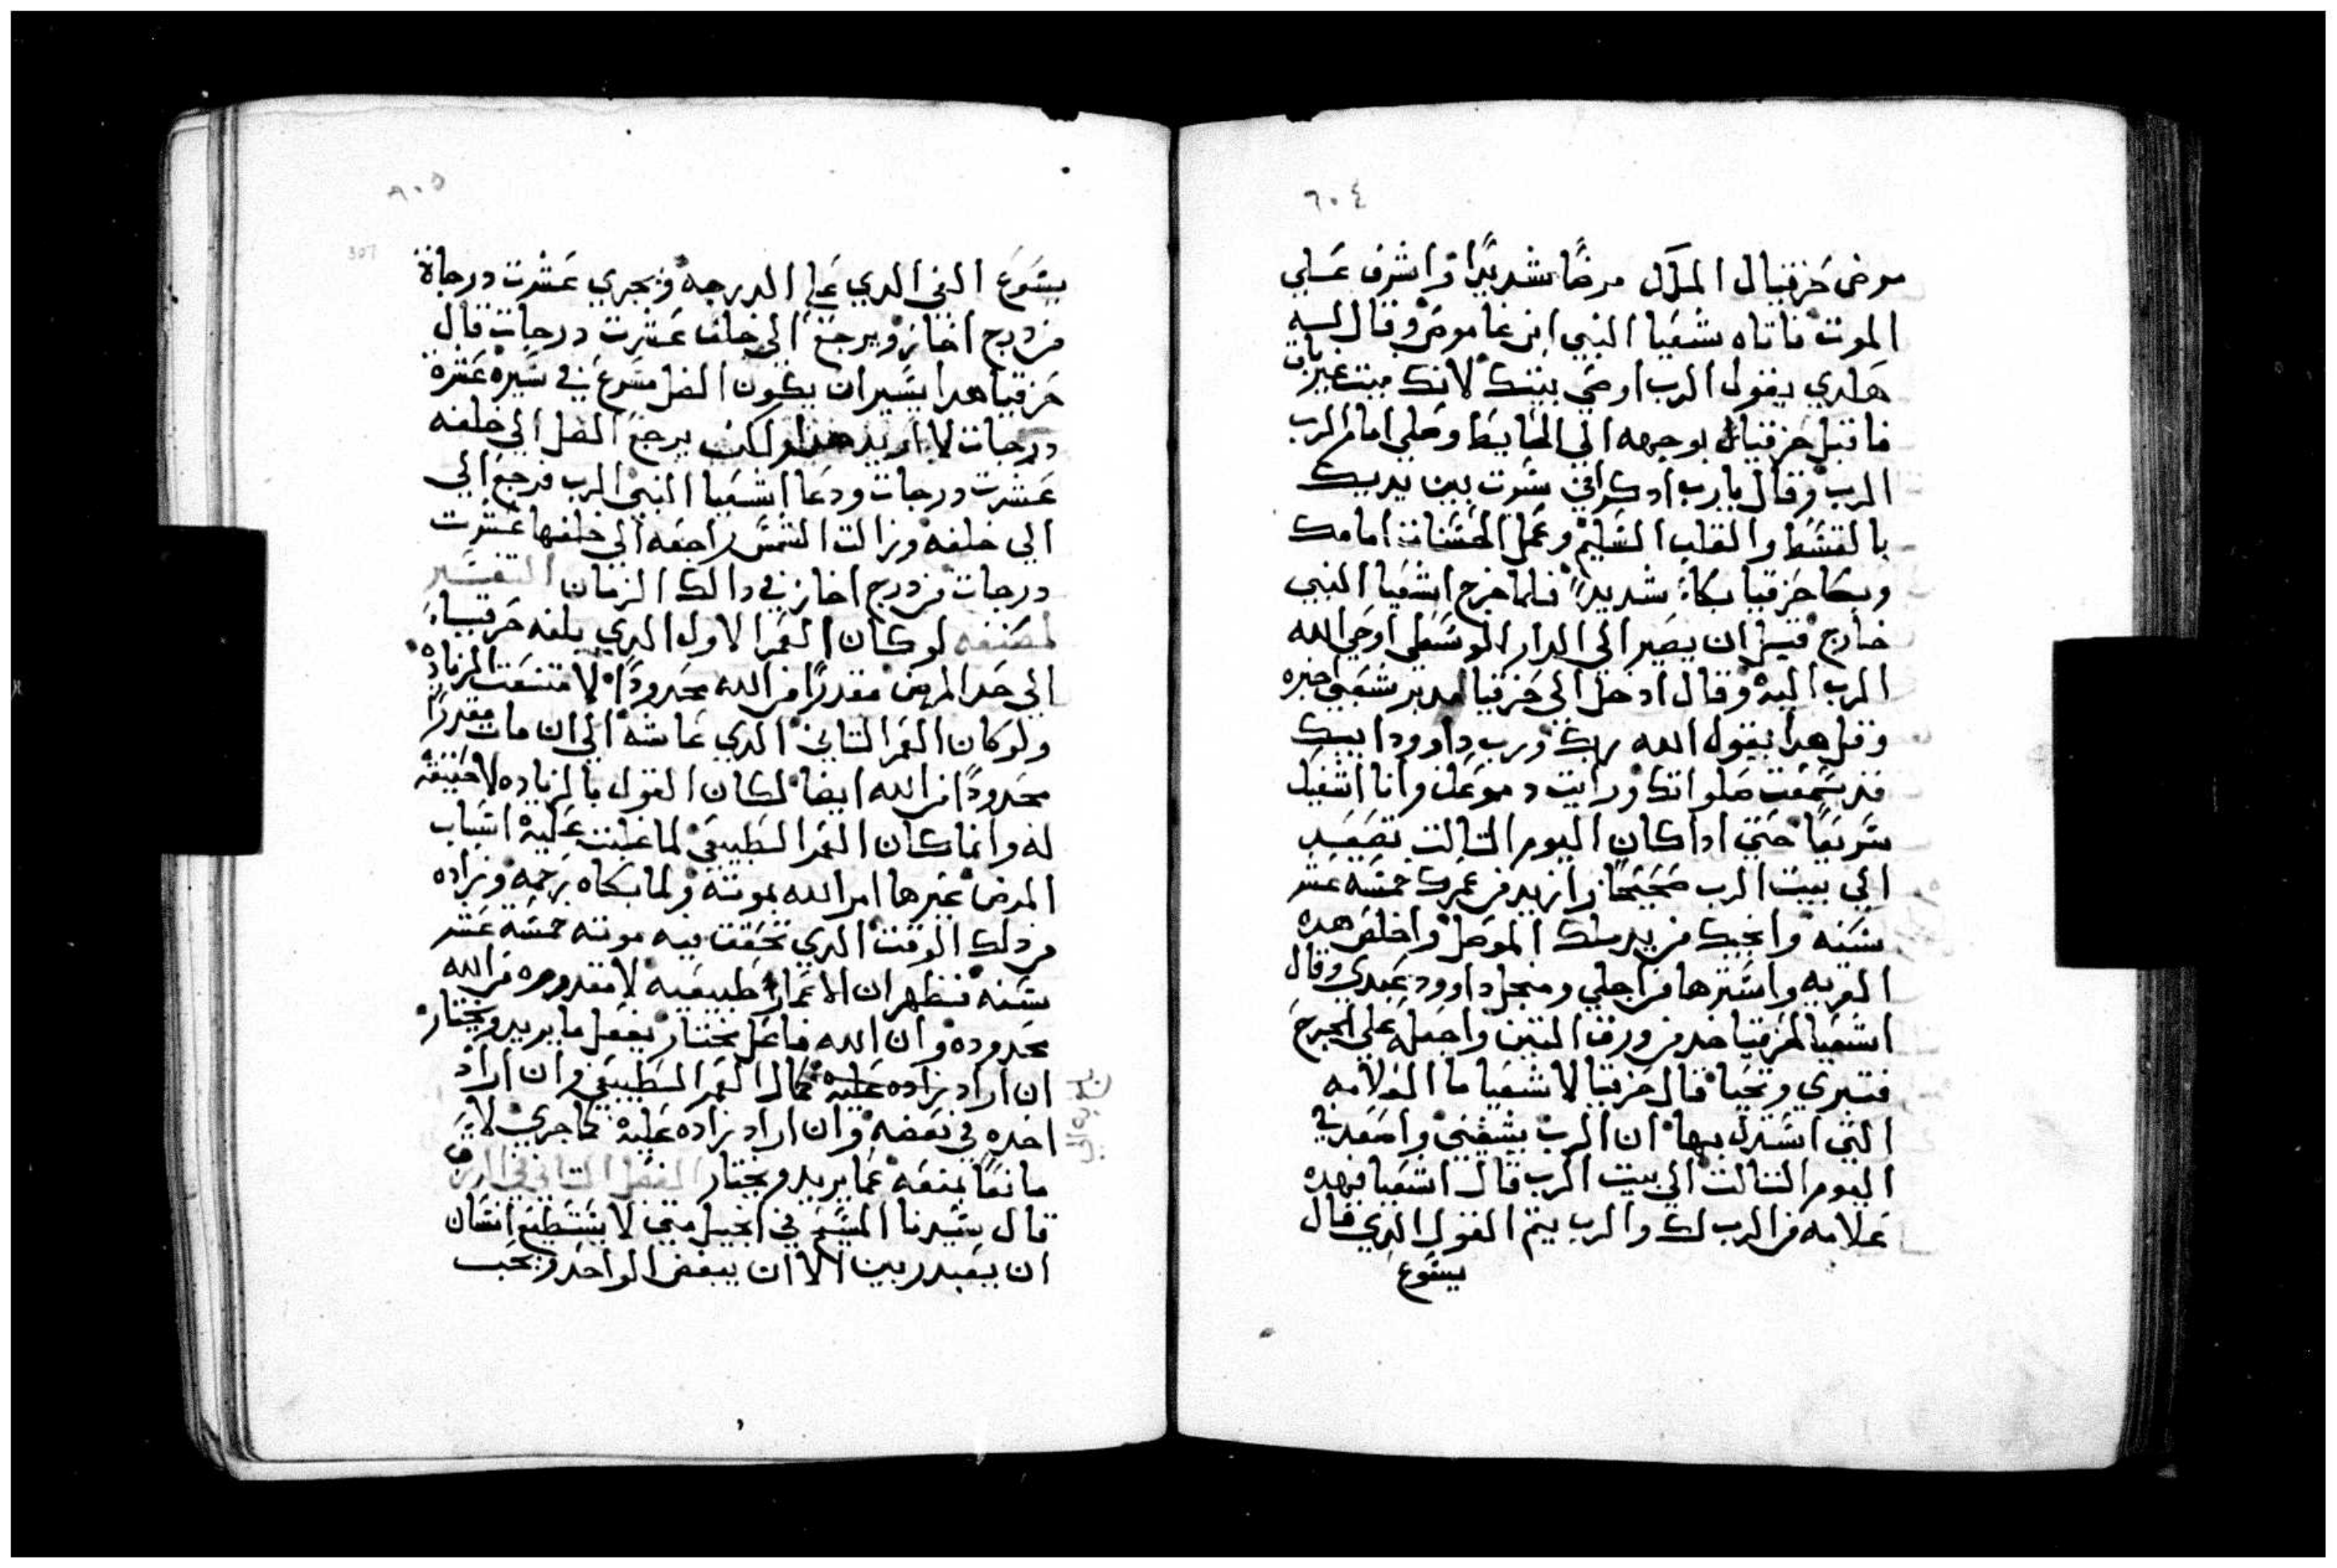 ٦٠٤
مرض حزقيال الملك مرضًا شديدًا واشرف علي
الموت فاتاه شعيا النبي ابن عاموص وقال له
هكدي يقول الرب اوصي بيتك لانك ميت غير باق
فاقبل حزقيال بوجهه الي الحايط وصلي امام الرب
الرب وقال يارب ادكر اني سرت بين يديك
بالقسط والقلب السليم وعمل الحسنات امامك
وبكا حزقيا بكاءً شديدًا فلما خرج اشعيا النبي
خارج قبل ان يصير الي الدار الوسطي اوحي الله
الرب اليه وقال ادخل الي حزقيا مدبر شعبي اخبره
وقل هدا يقول الله ربك ورب داوود ابيك
قد سمعت صلواتك ورايت دموعك وانا اشفيك
سريعًا حتي ادا كان اليوم التالت تصعد
الي بيت الرب صحيحًا وازيد في عمرك خمسة عشر
سنه وانجيك من يد ملك الموصل واخلص هده
القريه واسترها من اجلي ومنجل داوود عبدي وقال
اشعيا لحزقيا خد من ورق التين واجعله علي الجرح
فتبري وتحيا قال حزقيا لاشعيا ما العلامه
التي استدل بها ان الرب يشفيني واصعد في
اليوم التالت الي بيت الرب قال اشعيا فهده
علامه من الرب لك والرب يتم القول الدي قال
يسوع
٦٠٥
307
يسوع الفي الدي علي الدرجه ويجري عشرت درجاة
من درج احاز ويرجع الي خلف عشرت درجات قال
حزقيا هدا يسير ان يكون الضل مسرع في سيره عشره
درجات لا اريد هدا ولكن يرجع الضل الي خلفه
عشرت درجات ودعا اشعيا النبي الرب فرجع الي
الي خلفه وزالت الشمس راجعه الي خلفها عشرت
درجات من درج احاز في دالك الزمان التفسير
لمصنفه لو كان العمر الاول الدي بلغه حزقيا
الي حد المرض مقدرًا من الله محدودًا لامتنعت الزياده
ولو كان العمر التاني الدي عاشه الي ان مات مقدرًا
محدودًا من الله ايضا لكان القول بالزياده لا حقيقه
له وانما كان العمر الطبيعي لما غلبت عليه اسباب
المرض غيرها امر الله بموته ولما بكاه رحمه وزاده
من دلك الوقت الدي تحققت فيه موته خمسه عشر
سنه فظهر ان الاعمار طبيعيه لا مقدوره من الله
محدوده وان الله فاعل مختار يفعل ما يريد ويختار
ان اراد زاده عليه كمال العمر الطبيعي وان اراد
اخده في بعضه وان اراد زاده عليه كما جري لا
مانعًا يمنعه عما يريد ويختار الفصل التاني في الرزق
قال سيدنا المسيح في انجيل متي لا يستطيع انسان
ان يعبد ربين الا ان يبغض الواحد ويحب